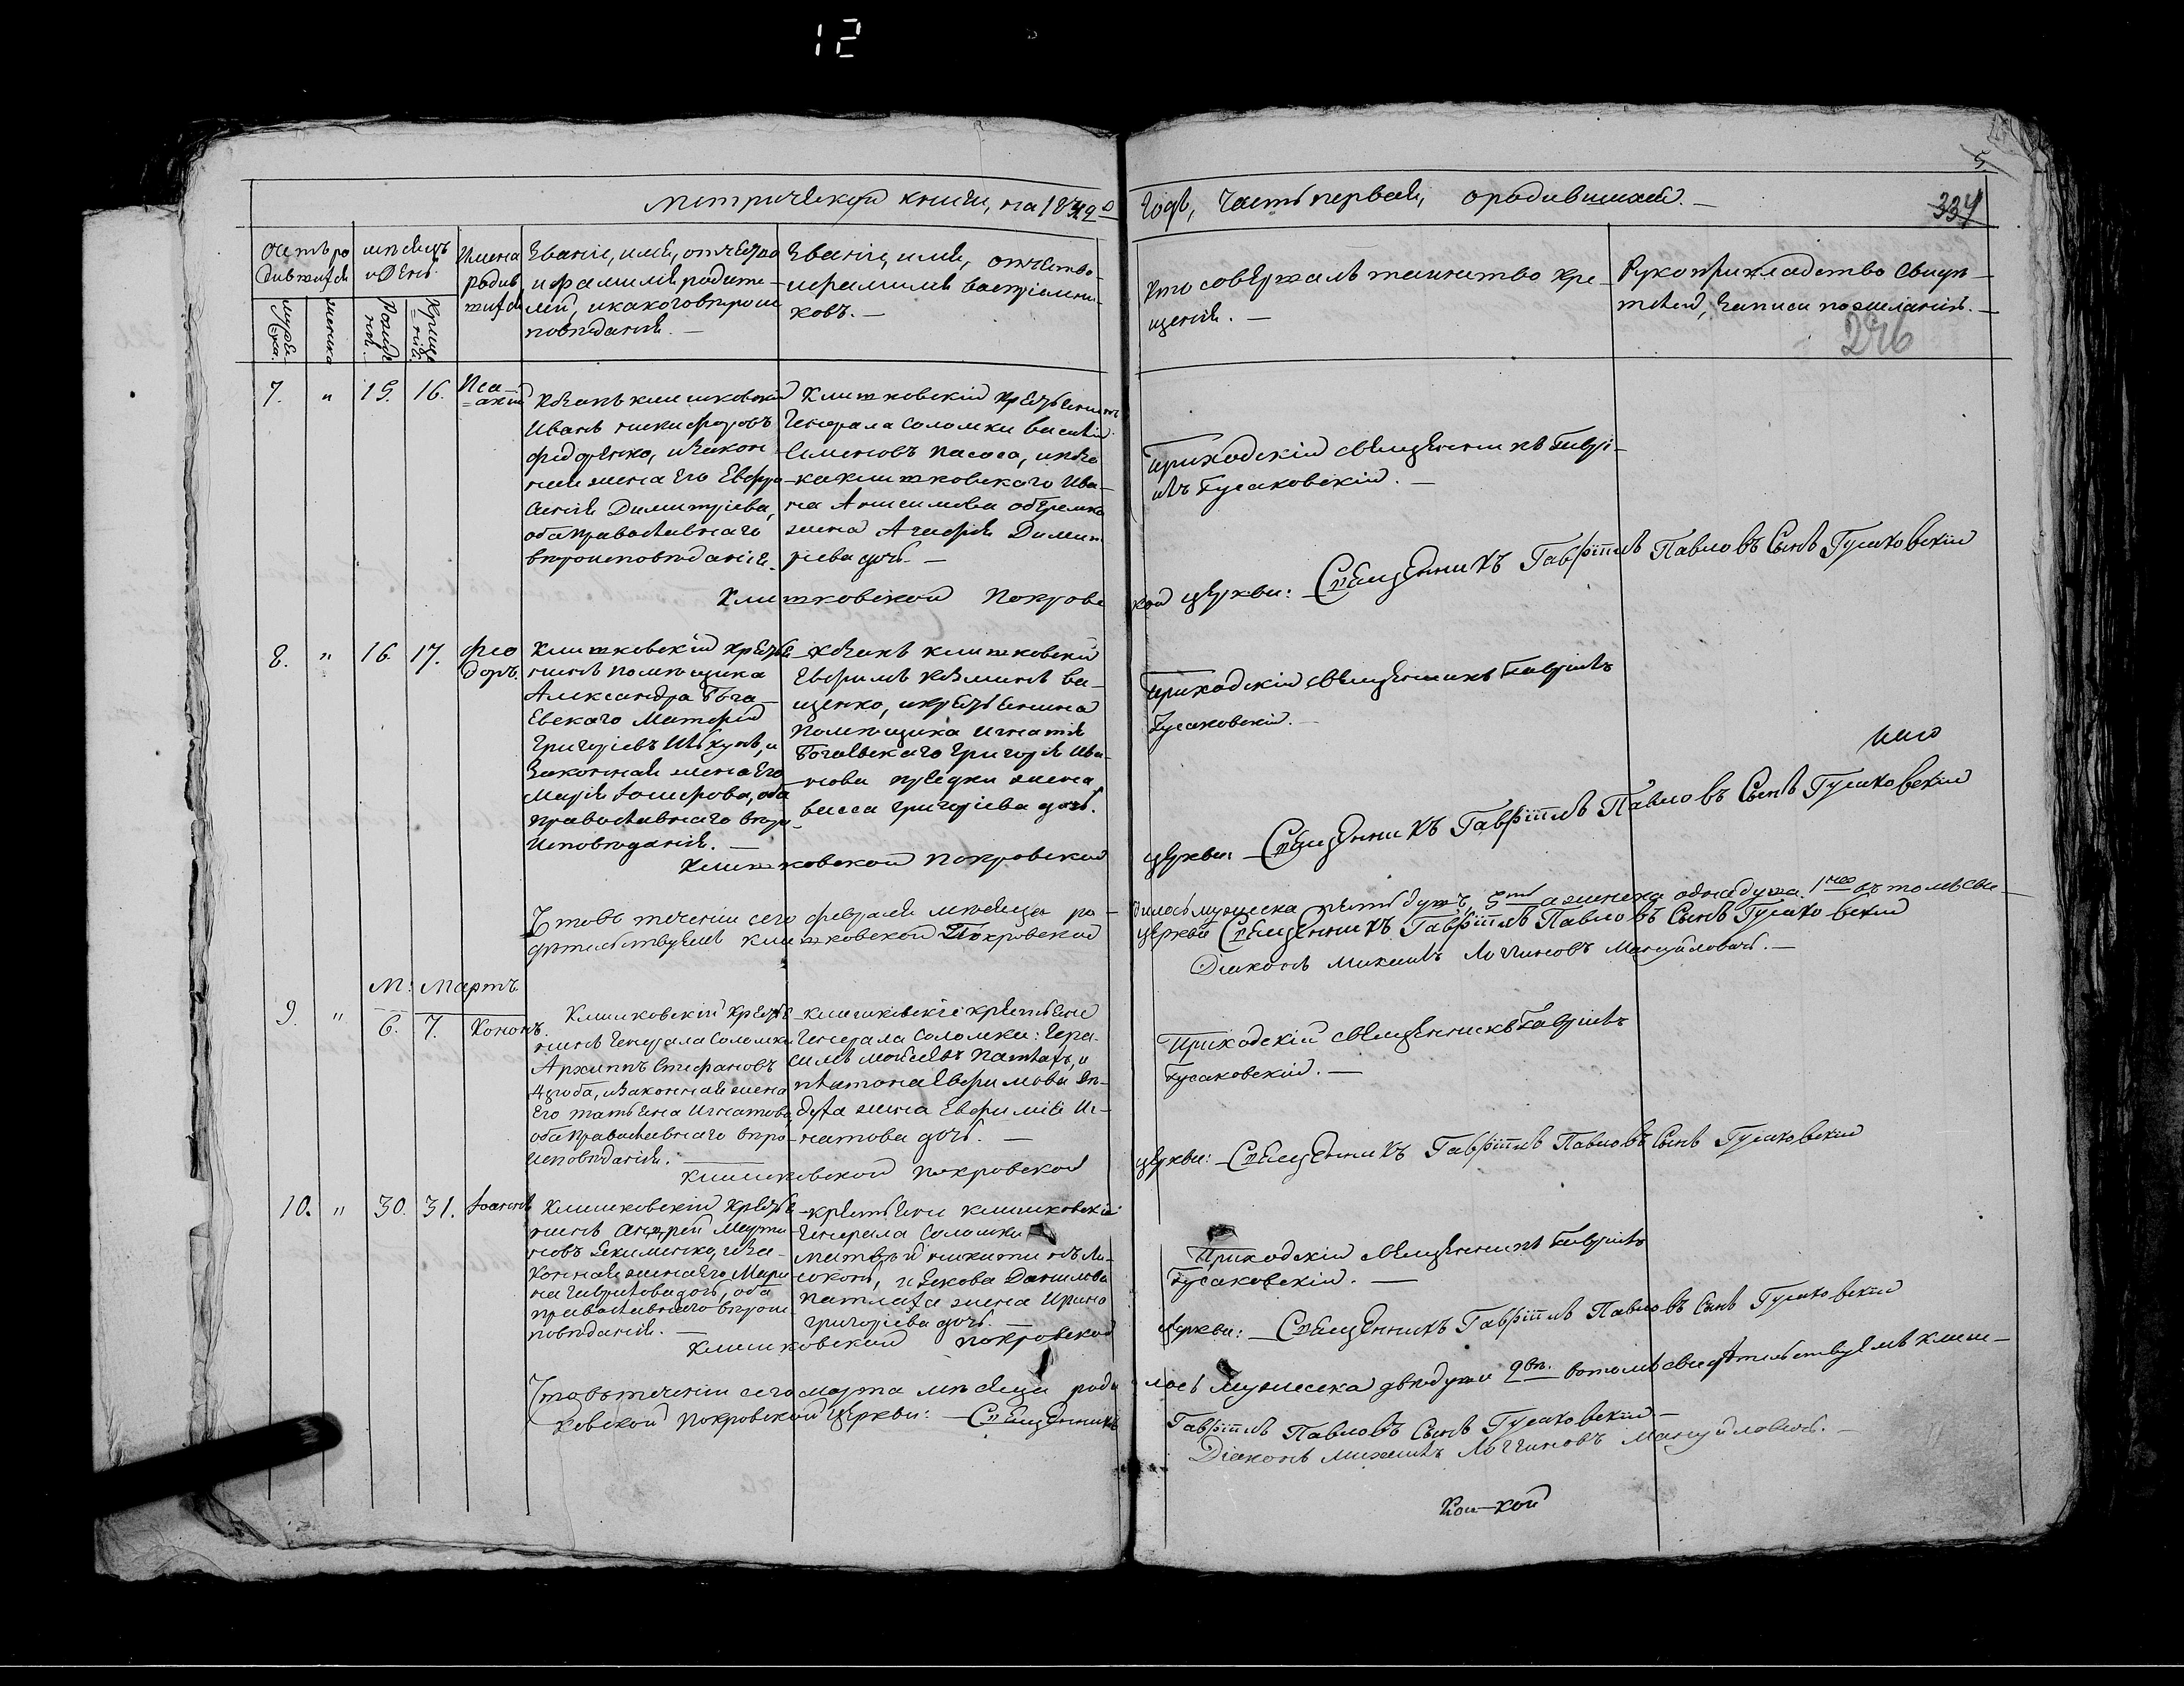 12
Метрической книги, на 1842º
Годъ, Часть первая, о родившихся. —
5.
334
Счетъ ро
дившихся
мѣсяцъ
и День
Имена
родив
шихся
Званіе, имя, отчество
и фамилія родите-
лей, и какого вѣрои
повѣданія. —
Званіе, имя, отчество
и фамилія воспріемни-
ковъ. —
Кто совершалъ таинство кре-
щенія. —
Рукоприкладство свидѣ-
телей, записи по желанію. —
296
мужес
ка.
женска
Рожде
нія.
Креще
нія.
7. " 15. 16. Иса
акій
Казакъ климковскій
Иванъ никифоровъ
Федоренко, и закон
ная жена его Евфро
синія Димитріева,
оба православнаго
вѣроисповѣданія.
Климковскій крестьянинъ
Генерала Соломки василій
Семеновъ и каза
ка климковскаго Ива-
на Анисимова
жена Агафія Димит
ріева дочь. —
Приходскій священникъ Гаврі-
илъ Гусаковскій. —
Климковской Покровс
кой церкви: Священникъ Гавріилъ Павловъ Сынъ Гусаковскій
8. " 16. 17. Фео
доръ.
Климковскій кресть
нинъ помѣщика
Александра
евскаго Матфей
Григорьевъ и
Законная жена его
Марія оба
православнаго вѣро
исповѣданія. —
казакъ климковскій
Ефимъ Козминъ ва-
щенко, и крестьянина
Помѣщика Игнатія
Григорія Ива-
нова жена
васса Григоріева дочь.
Приходскій священникъ Гавріилъ
Гусаковскій. —
Климковской Покровской
церкви: Священникъ Гавріилъ Павловъ Сынъ Гусаковскій
Что въ теченіи сего февраля мѣсяца ро-
дилось мужеска пять душъ, 5ть а женска одна душа 1на въ томъ сви-
дѣтельствуемъ климковской Покровской
церкви Священникъ Гавріилъ Павловъ Сынъ Гусаковскій
Діаконъ Михаилъ Логгиновъ Мануйловичъ. —
М: Мартъ
9. " 6. 7. Кононъ.
Климковскій кресть
нинъ Генерала Соломки
Архиппъ Стефановъ
и законная жена
его татьяна Игнатова,
оба православнаго вѣро-
исповѣданія.
климковскіе крестьяне
Генерала Соломки: Гера-
симъ Моисеевъ и
платона Ефимова
жена Евфимія Иг-
натова дочь. —
Приходскій священникъ Гавріилъ
Гусаковскій. —
климковской Покровской
церкви: Священникъ Гавріилъ Павловъ Сынъ Гусаковскій
10. " 30. 31. Іоаннъ
Климковскій кресть
нинъ Андрей Марти
новъ Якименко, и за-
конная жена его Мари
на Гаврилова дочь, оба
православнаго вѣрои
повѣданія. —
крестьяне климковскіе
Генерала Соломки
Матвѣй никитинъ
и Якова Данилова
жена Ирина
григоріева дочь. —
Приходскій священникъ Гавріилъ
Гусаковскій. —
Климковской покровской
церкви: Священникъ Гавріилъ Павловъ Сынъ Гусаковскій
Что въ теченіи сего марта мѣсяца роди
лось мужеска двѣ души 2вѣ. въ томъ свидѣтельствуемъ клим-
ковской Покровской церкви: Священникъ
Гавріилъ Павловъ Сынъ Гусаковскій —
Діаконъ Михаилъ Логгиновъ Мануйловичъ. —